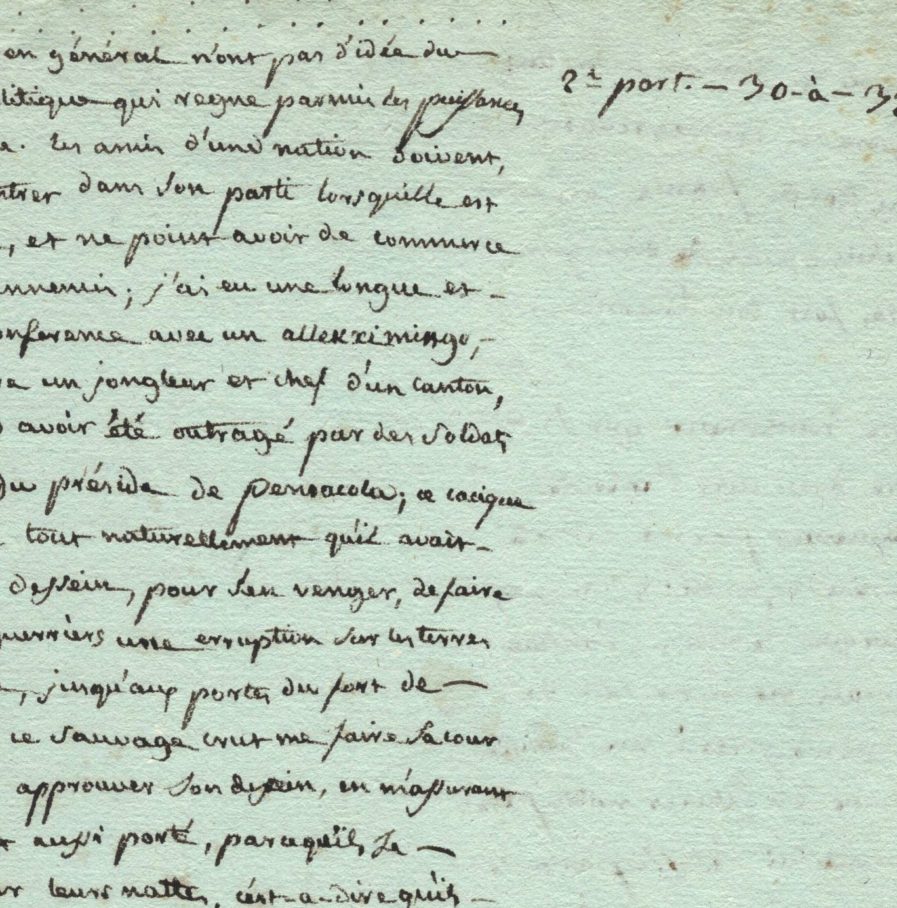 . . . . . . . . . . . . . .
en général n'ont pas d'idée du —
litique qui regne parmis les puissances
2e part. — 30 - à - 3
a. les amis d'une nation doivent,
ntrer dans son parti lorsqu'elle est
, et ne point avoir de commerce
nnemis; j'ai eu une longue et -
onférence avec un allekximingo, -
re un jongleur et chef d'un canton,
avoir été outragé par des soldats
du préside de pensacola; ce cacique
tout naturellement qu'il avait -
dessein, pour s'en venger, de faire
guerriers une erruption sur les terres
, jusqu'aux portes du fort de —
ce sauvage crut me faire sa cour
approuver son dessein, en m'assurant
t aussi porté, parcequ'ils se —
ur leurs nattes, c'est-a-dire qu'ils -